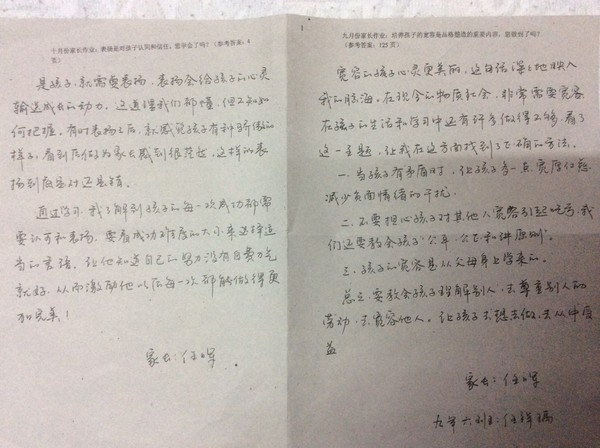 十月份家长作业:表扬是对孩子认同和信任,您学会了吗?(参考答案:4
页)
是孩子,就需要表扬,表扬会给孩子的心灵
输送成长的动力。这道理我们都懂,但不知如
何把握,有时表扬之后,就感觉孩子有种骄傲的
样子,看到后做为家长感到很茫然,这样的表
扬到底是对还是错。
通过学习,我了解到孩子的每一次成功都需
要认可和表扬,要看成功难度的大小来选择适
当的言语,让他知道自己的努力没有白费力气
就好,从而激励他以后每一次都能做得更
加完美!
家长:任
九月份家长作业:培养孩子的宽容是品格塑造的重要内容,您做到了吗?
(参考答案:125页)
宽容的孩子心灵更美丽,这句话深深地映入
我的脑海,在现今的物质社会,非常需要宽容
在孩子的生活和学习中还有许多做得不够,看了
这一主题,让我在这方面找到了正确的方法。
一.当孩子有矛盾时,让孩子多一点宽厚仁慈
减少负面情绪的干扰.
二.不要担心孩子对其他人宽容引起吃亏,我
们还要教会孩子"公平,公正和讲原则".
三.孩子的宽容是从父母身上学来的。
总之,要教会孩子理解别人,去尊重别人的
劳动,去宽容他人。让孩子去想去做,去从中受
益
家长:任
九年六班:任祥瑞